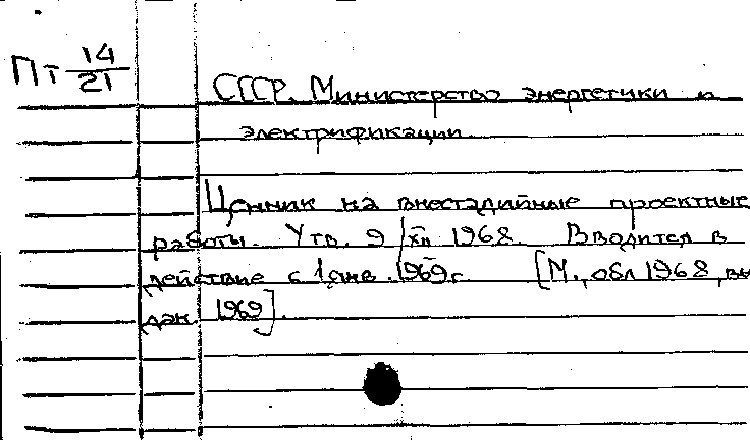 Пт 14/21
СССР. Министерство энергетики и
электрификации.
Ценник на внестадийные проектные
работы. Утв. 9/XII 1968. Вводится в
действие с 1 янв. 1969 г. [М., обл 1968, вы
дан. 1969].